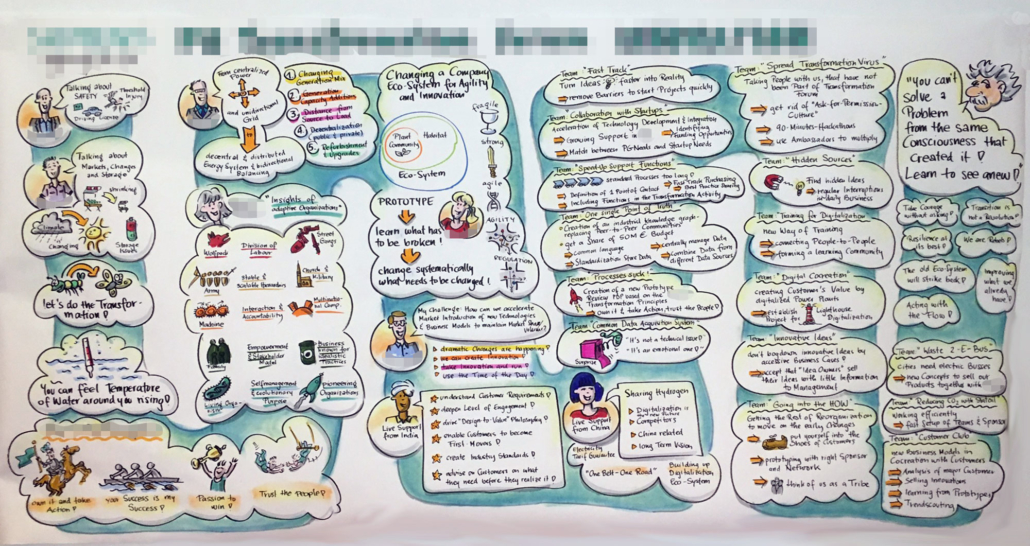 Talking about
SAFETY
Threshold
Driving Licence
Talking about
Markets, Changes
and Storage
shrinking
Climate
Changing
Storage
Let's do the Transfor-
mation!
You can feel Temperature
of Water around you rising!
own it and take
Action!
your Success is my
Success!
Passion to
win!
Trust the people!
From centralized
Power
and unidirectional
Grid
TO
decentral & distributed
Energy System & bidirectional
Balancing
1 Changing
Generation Mix
2 Generation
Capacity Additions
3 Distance from
Source to Land
4 Decentralization
(public & private)
5 Refurbishment
& Upgrades
"Insights of
adaptive Organizations"
Wolfpack
Division of
Labour
Street
Gangs
Army
Stable &
Scalable Hierarchies
Church &
Military
Machine
Innovation &
Accountability
Multinatio-
nal Comp.
Empowerment
& Stakeholder
Model
Business
known for
idealistic
Practices
Living Orga-
Selfmanagement
Evolutionary
Purpose
Pioneering
Organizations
Changing a Company
Eco-System for Agility
and Innovation
Plant
Community
Habitat
Eco-System
fragile
strong
agile
AGILITY
REGULATION
PROTOTYPE
learn what has
to be broken!
change systematically
what needs to be changed!
My Challenge: How can we accelerate
Market Introduction of new Technologies
& Business Models to maintain Market Share
Dramatic Changes are happening!
we can create Innovation!
take Innovation and run
use the Time of the Day!
Live Support
from India
understand Customer Requirements!
deeper Level of Engagement!
drive "Design to Value" Philosophy!
enable Customers to become
First Movers!
create Industry Standards!
advise on Customers on what
they need before they realize it!
Team "Fast Track"
Turn Ideas factor into Reality
remove Barriers to start Projects quickly
Team: Collaboration with Startups
Acceleration of Technology Development & Integration
Growing Support in
Identifying
Funding Opportunities
Match between PG-Needs and Startup Needs
Team: "Speed-Up Support Functions"
standard Processes too long!
Fast Track Purchasing
Definition of 1 Point of Contact
Best Practice Sharing
Including Functions in the Transformation Activity
Team: "One single Point of Truth
Creation of an industrial Knowledge graph-
replacing "Peer-to-Peer Communities"
get a Share of 50M € Budget
Common Language
centrally manage Data
Standardization Stare Data
Combine Data from
different Data Sources
Team: "Processes quick!
Creation of a new Prototype
Review PDP based on the
Transformation Principles
own it & take Action, trust the People!
Team: Common Data Acquisition System
Surprise
"It's not a technical Issue"!
"It's an emotional one"!
Live Support
from China
Sharing Hydrogen
Digitalization is
the new future
Competitors
China related
long Term Vision
Electricity
Tarif Guarantee
"One Belt-One Road"
Building up
Digitalization
Eco-System
Team: "Spread Transformation Virus"
Taking People with us, that have not
been Part of Transformation
forum
get rid of "Ask-for-Permission-
Culture"
90-Minutes-Hackathons
use Ambassadors to multiply
Team: "Hidden Sources"
Find hidden Ideas
regular Interruptions
in daily Business
Team: Training for Digitalization
new Way of Training
connecting People-to-People
forming a Learning Community
Team: "Digital Cocreation"
creating Customer's Value by
digitalized Power Plants
establish Lighthouse
Project for "Digitalization"
Team: "Innovative Ideas"
don't boydown innovative Ideas by
accessible Business Cases!
accept that "Idea Owners" sell
their Ideas with little Information
to Management!
Team: "Going into the HOW"
Getting the Rest of Reorganization
to move on the early Changes
put yourself into the
Shoes of Customers
prototyping with right Sponsor
and Network
think of us as a Tribe
"You can't
solve a
Problem
from the same
Consciousness that
Created it!
Learn to see anew!"
Take Courage
without asking!
Transition is
not a Revolution!
Resilience at
its best!
We are Robots!
The old Eco-System
will strike back!
Improving
what we
already
have!
Acting with
the "Flow"!
Team "Waste 2-E-Bus
Cities need electric Busses
Find Concepts to sell out
Products together with
Team: "Reducing CO2 with Statoil
working efficiently
fast Setup of Teams & Sponsor
Team: "Customer Club
new Business Models in
Cocreation with Customers
Analysis of major Customers
Selling Innovations
learning from Prototypes
Trendscouting